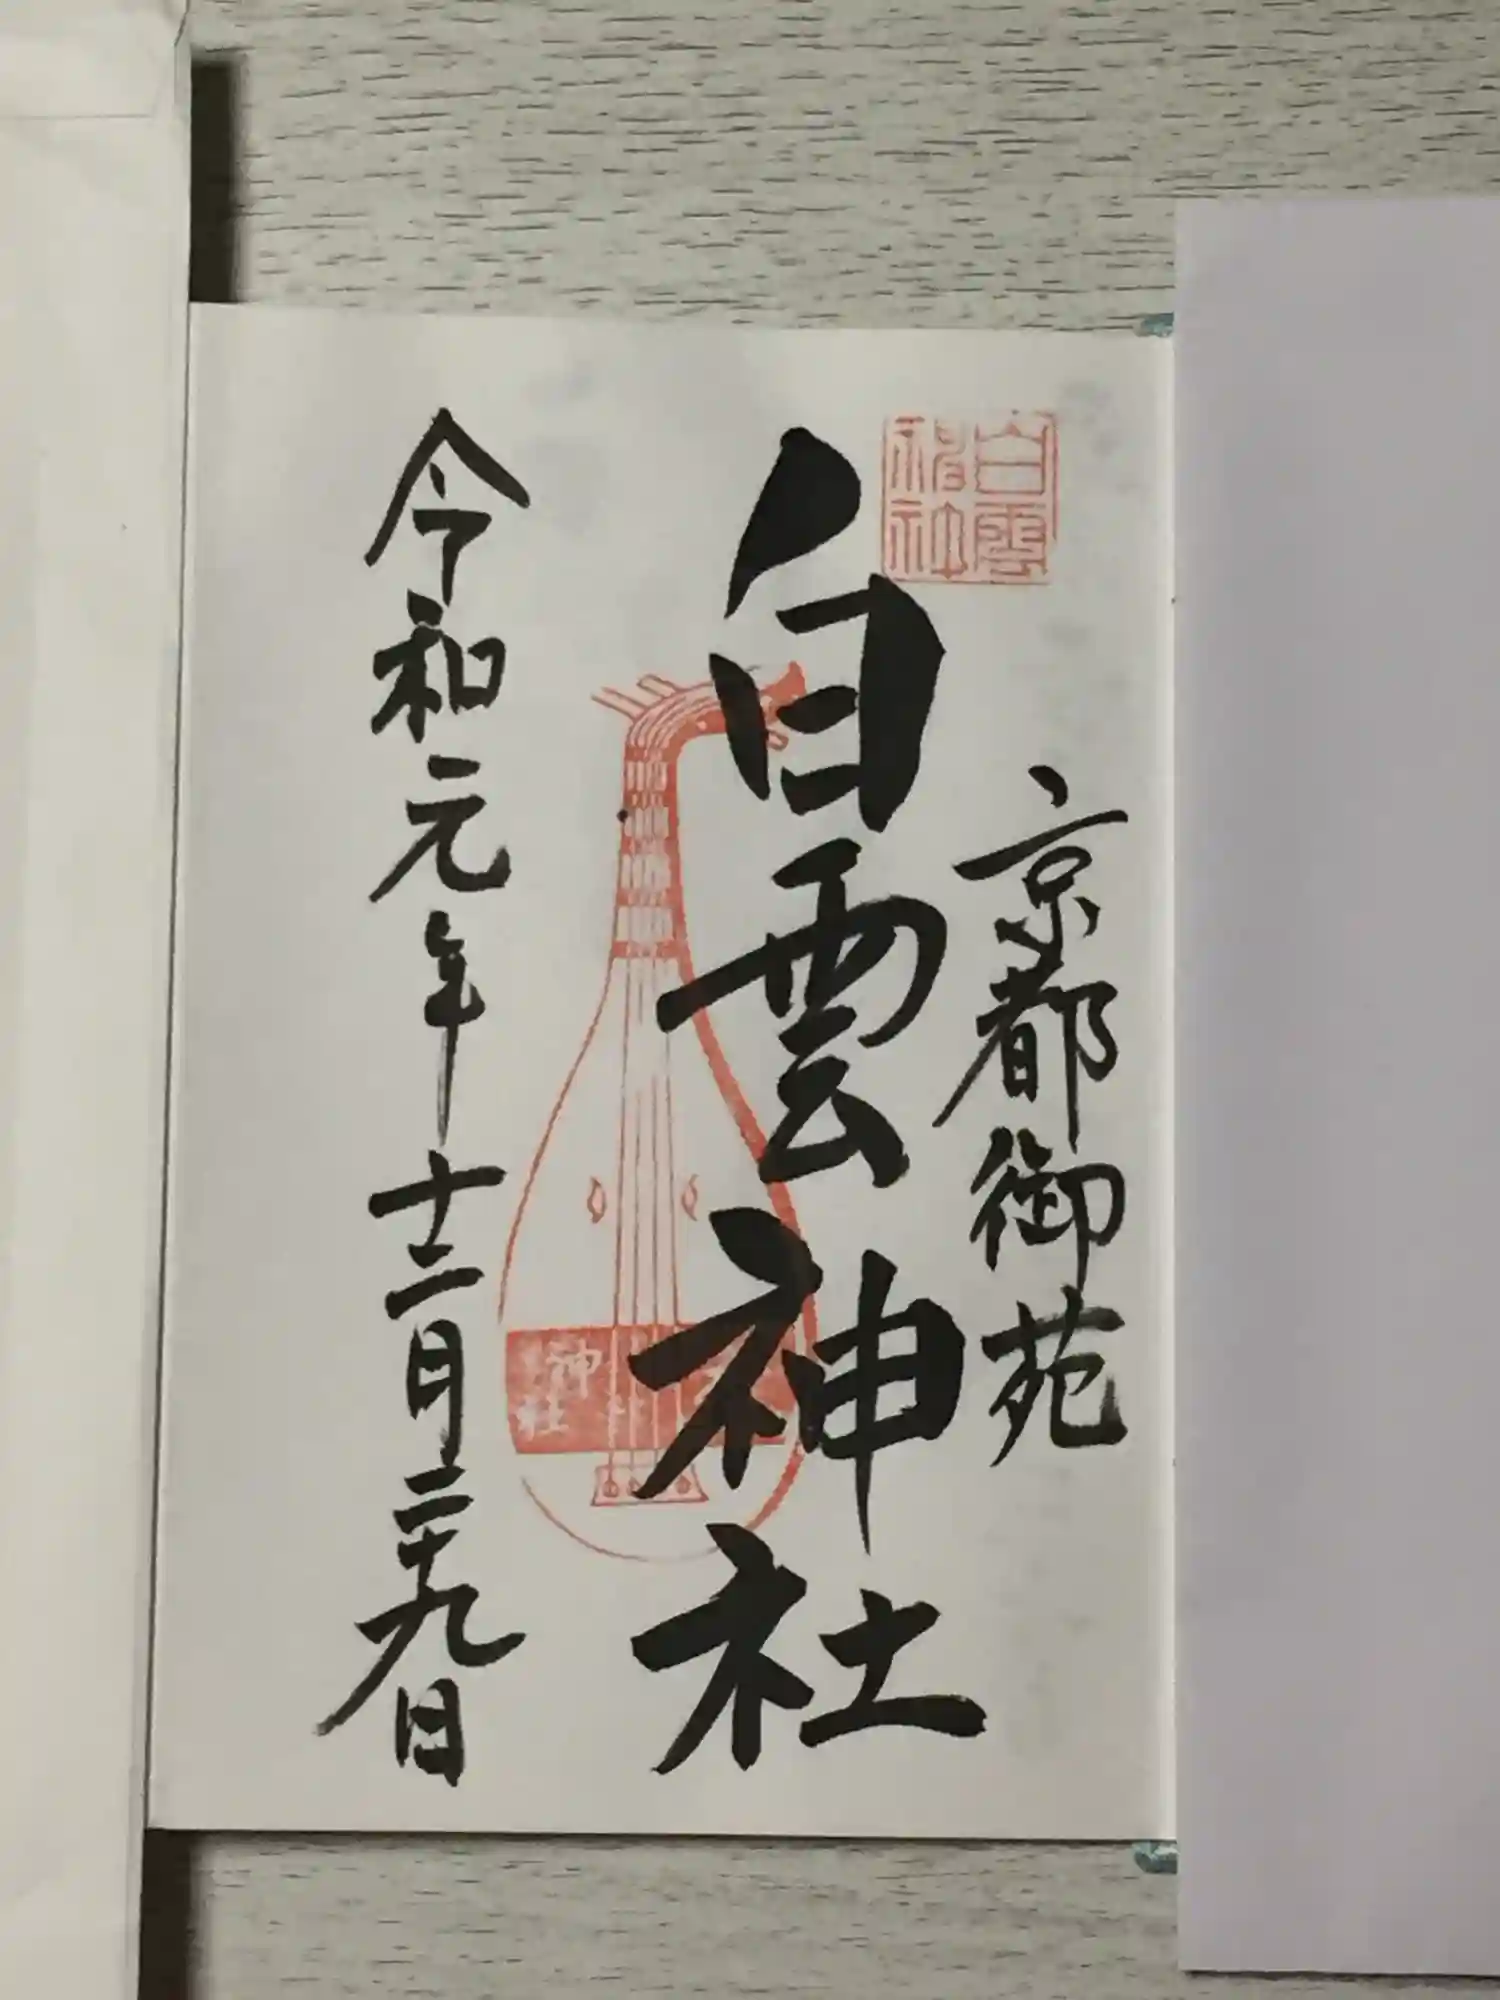 京都御苑
白雲神社
白雲
神社
令和元年十二月二十九日
神
社